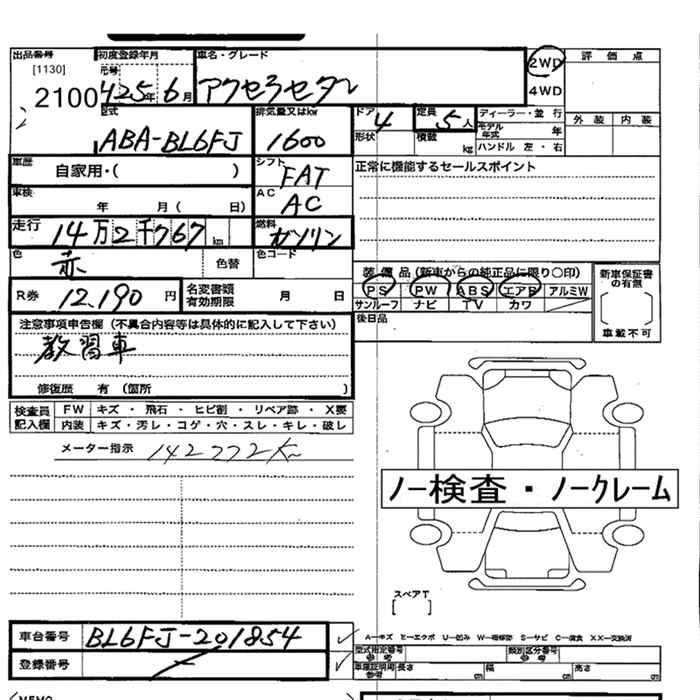 出品番号 初度登録年月 車名・グレード 2WD 評価点
[1130] 元号 4WD
2100 H25年6月 アクセラセダン
型式 排気量又はkw ドア 4 定員 5人 ディーラー・並行 外装 内装
ABA-BL6FJ 1600 形状 積載 kg モデル年式 年
ハンドル 左・右
車歴 自家用・( ) シフト FAT 正常に機能するセールスポイント
車検 年 月( 日) AC AC
走行 14万2千767km 燃料 ガソリン
色 赤 色替 色コード
装備品(新車からの純正品に限り○印) 新車保証書の有無
R券 12,190円 名変書類有効期限 月 日 PS PW ABS エアB アルミW
サンルーフ ナビ TV カワ
注意事項申告欄(不具合内容等は具体的に記入して下さい) 後日品 車載不可
教習車
修復歴 有(箇所 )
検査員記入欄 FW キズ・飛石・ヒビ割・リペア跡・X要
内装 キズ・汚レ・コゲ・穴・スレ・キレ・破レ
メーター指示 142772K
ノー検査・ノークレーム
スペアT
[ ]
車台番号 BL6FJ-201854
A-キズ E-エクボ U-凹み W-補修跡 S-サビ C-腐食 XX-交換済
登録番号 型式指定番号 参考 類別区分番号 参考
車庫証明用参考 長さ cm 幅 cm 高さ cm
MEMO